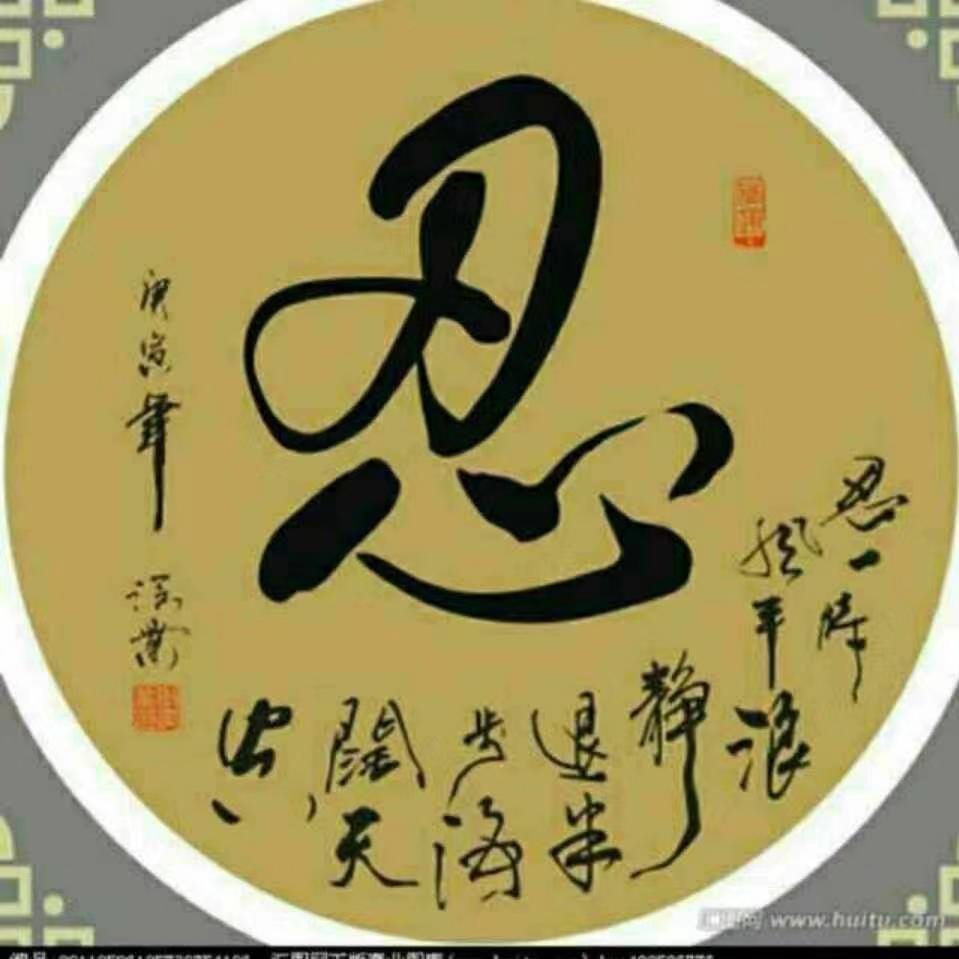 忍
忍一時
風平浪
靜
退半
步海
闊天
空
庚寅年
www.huitu.com